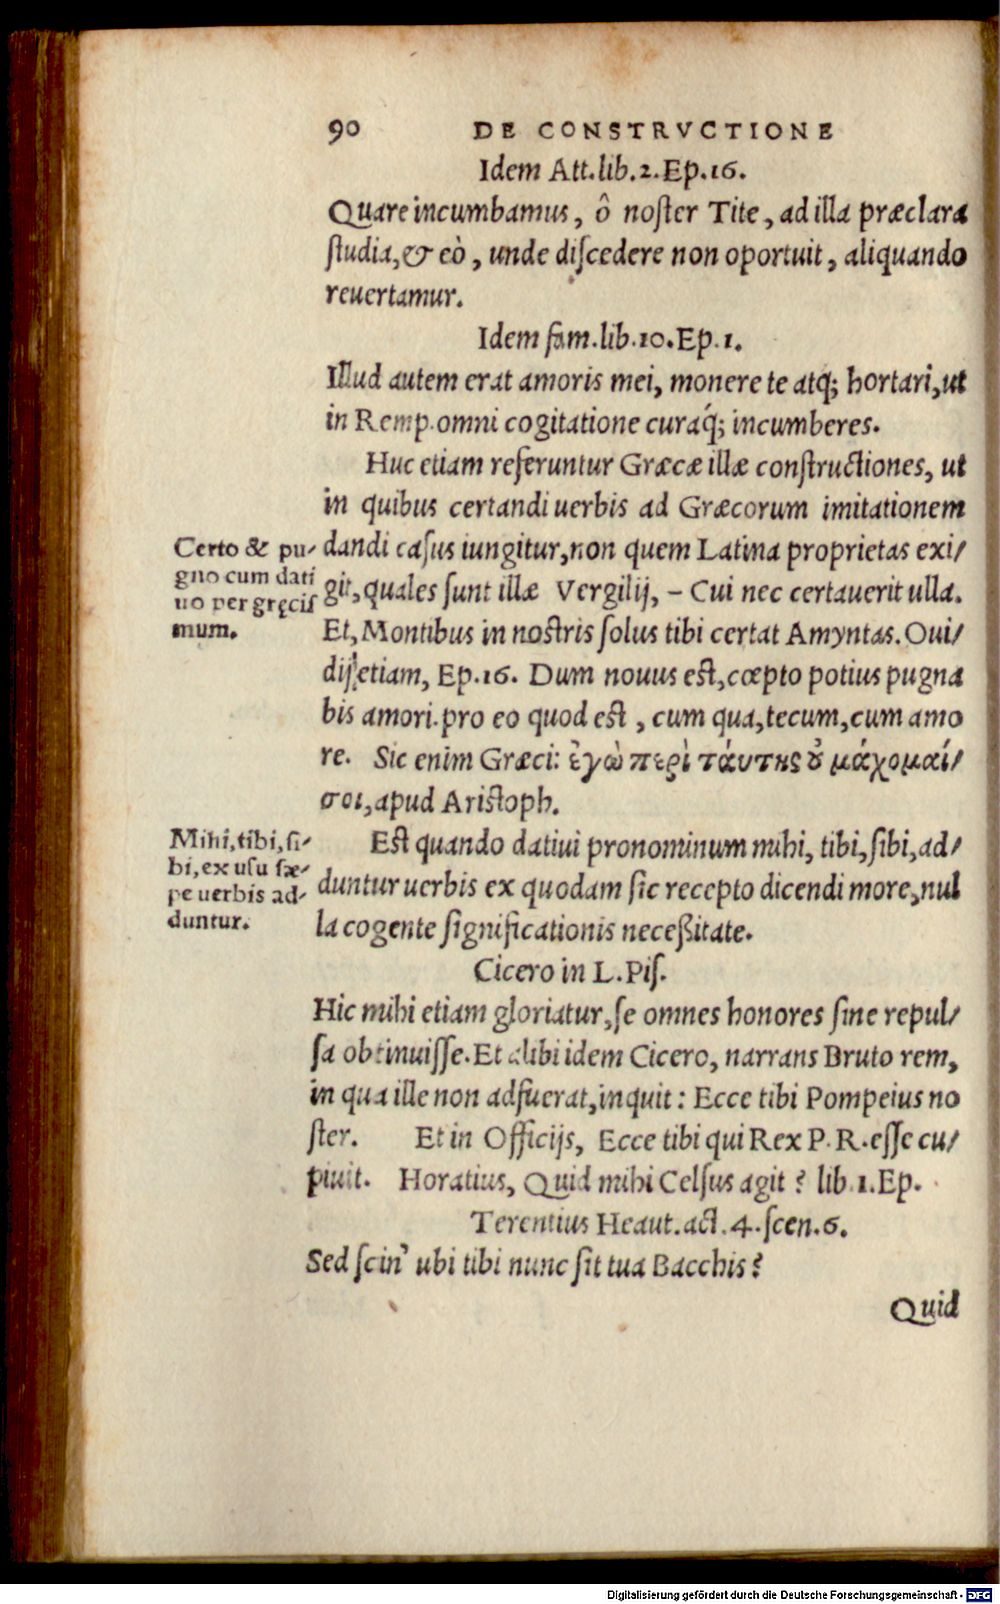 90 DE CONSTRVCTIONE
Idem Att.lib.2.Ep.16.
Quare incumbamus, ô noster Tite, ad illa præclara
studia, & eò, unde discedere non oportuit, aliquando
reuertamur.
Idem fam.lib.10.Ep.1.
Illud autem erat amoris mei, monere te atq; hortari, ut
in Remp. omni cogitatione curaq́; incumberes.
Huc etiam referuntur Græcæ illæ constructiones, ut
in quibus certandi uerbis ad Græcorum imitationem
Certo & pu-
gno cum dati
uo per gręcis
mum.
dandi casus iungitur, non quem Latina proprietas exi-
git, quales sunt illæ Vergilij, – Cui nec certauerit ulla.
Et, Montibus in nostris solus tibi certat Amyntas. Oui-
dij etiam, Ep.16. Dum nouus est, cœpto potius pugna
bis amori. pro eo quod est, cum qua, tecum, cum amo
re. Sic enim Græci: ἐγὼ περὶ τάυτης ȣ̓ μάχομαί-
σοι, apud Aristoph.
Mihi, tibi, si-
bi, ex usu sæ-
pe uerbis ad-
duntur.
Est quando datiui pronominum mihi, tibi, sibi, ad-
duntur uerbis ex quodam sic recepto dicendi more, nul
la cogente significationis neceßitate.
Cicero in L.Pis.
Hic mihi etiam gloriatur, se omnes honores sine repul-
sa obtinuisse. Et alibi idem Cicero, narrans Bruto rem,
in qua ille non adfuerat, inquit: Ecce tibi Pompeius no
ster. Et in Officijs, Ecce tibi qui Rex P.R. esse cu-
piuit. Horatius, Quid mihi Celsus agit? lib.1.Ep.
Terentius Heaut.act.4.scen.6.
Sed scin' ubi tibi nunc sit tua Bacchis?
Quid
Digitalisierung gefördert durch die Deutsche Forschungsgemeinschaft - DFG